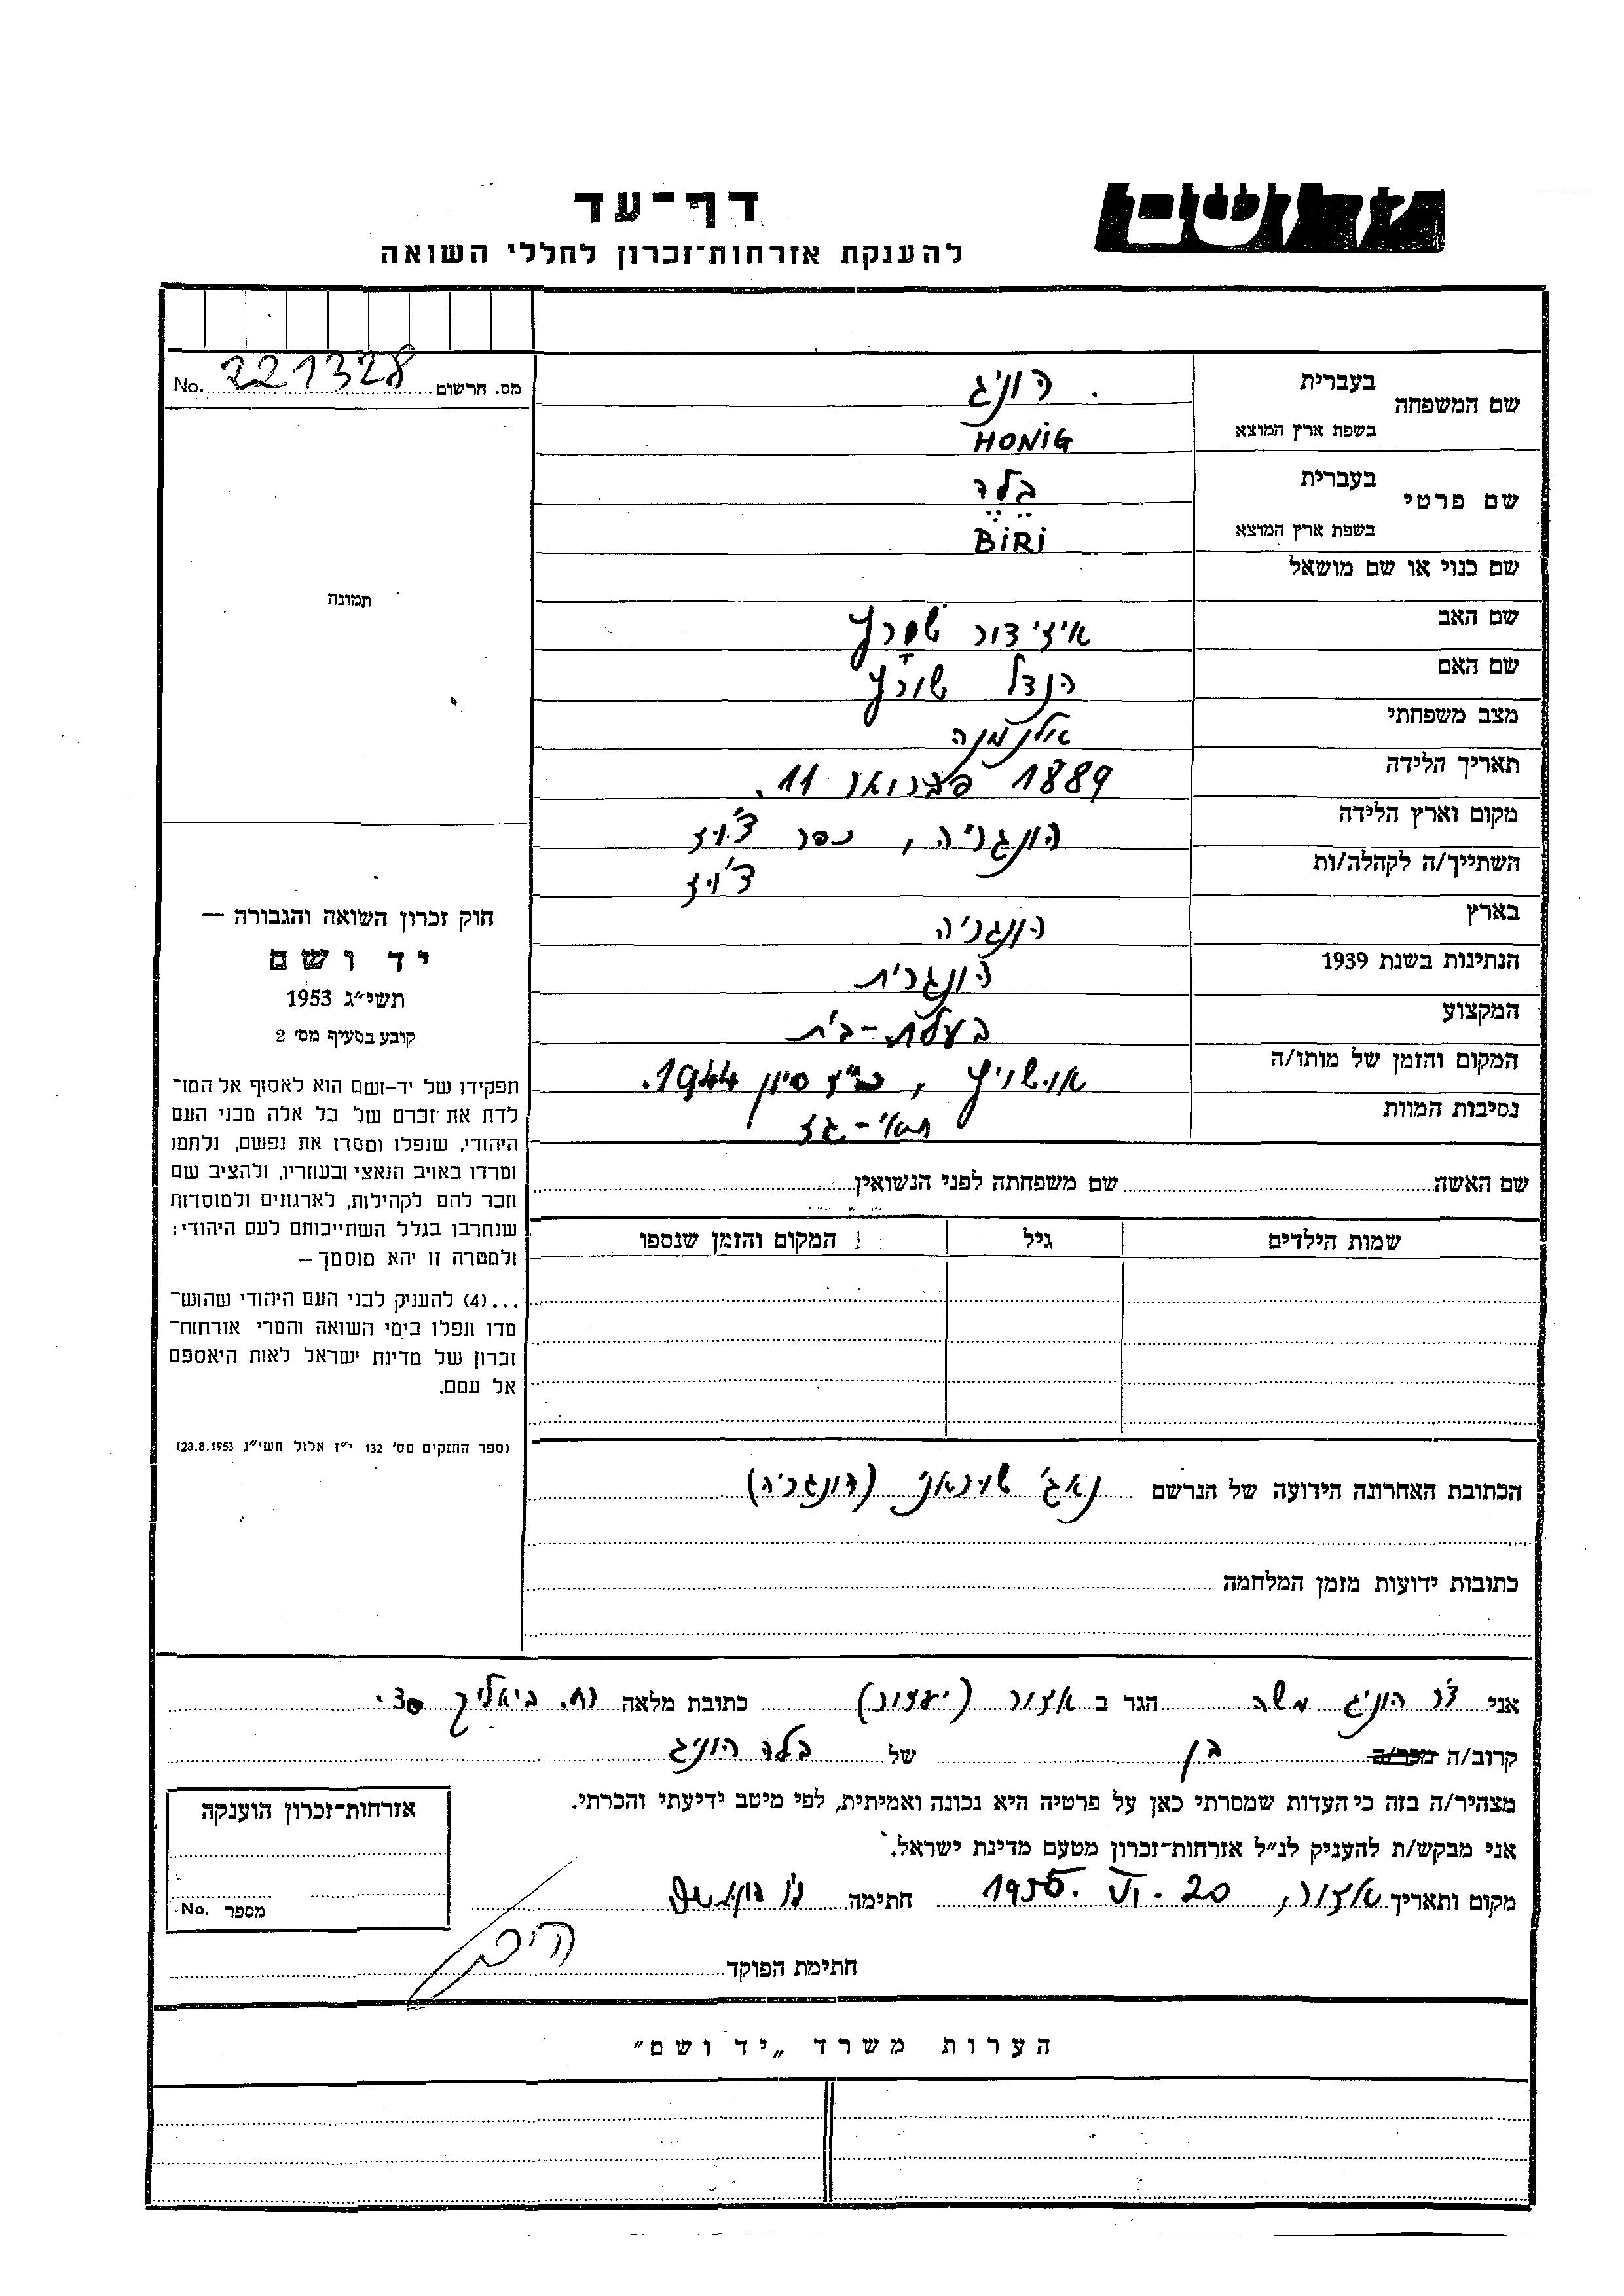 יד ושם
דף־עד
להענקת אזרחות־זכרון לחללי השואה
מס. הרשום 221328 No.
שם המשפחה
בעברית הוניג
בשפת ארץ המוצא HONIG
שם פרטי
בעברית בלה
בשפת ארץ המוצא BİRİ
שם כנוי או שם מושאל
שם האב איזידור שורץ
שם האם הנדל שורץ
מצב משפחתי אלמנה
תאריך הלידה 1889 פברואר 11.
מקום וארץ הלידה הונגריה,
השתייך/ה לקהלה/ות
בארץ הונגריה
הנתינות בשנת 1939 הונגרית
המקצוע בעלת-בית
המקום והזמן של מותו/ה אושויץ, סיון 1944.
נסיבות המוות תאי-גז
שם האשה שם משפחתה לפני הנשואין
שמות הילדים גיל המקום והזמן שנספו
תמונה
חוק זכרון השואה והגבורה —
יד ושם
תשי״ג 1953
קובע בסעיף מס׳ 2
תפקידו של יד-ושם הוא לאסוף אל המו־
לדת את זכרם של כל אלה מבני העם
היהודי, שנפלו ומסרו את נפשם, נלחמו
ומרדו באויב הנאצי ובעוזריו, ולהציב שם
וזכר להם לקהילות, לארגונים ולמוסדות
שנחרבו בגלל השתייכותם לעם היהודי;
ולמטרה זו יהא מוסמך —
...(4) להעניק לבני העם היהודי שהוש־
מדו ונפלו בימי השואה והמרי אזרחות־
זכרון של מדינת ישראל לאות היאספם
אל עמם.
(ספר החוקים מס׳ 132 י״ז אלול תשי״ג 28.8.1953)
הכתובת האחרונה הידועה של הנרשם נאג׳ (הונגריה)
כתובות ידועות מזמן המלחמה
אני ד״ר הוניג משה הגר ב אזור (יעזור) כתובת מלאה רח. ביאליק 30.
קרוב/ה מכר/ה בן של בלה הוניג
מצהיר/ה בזה כי העדות שמסרתי כאן על פרטיה היא נכונה ואמיתית, לפי מיטב ידיעתי והכרתי.
אני מבקש/ת להעניק לנ״ל אזרחות־זכרון מטעם מדינת ישראל.
מקום ותאריך אזור, 20. VI. 1956. חתימה
חתימת הפוקד
אזרחות־זכרון הוענקה
מספר No.
הערות משרד „יד ושם״